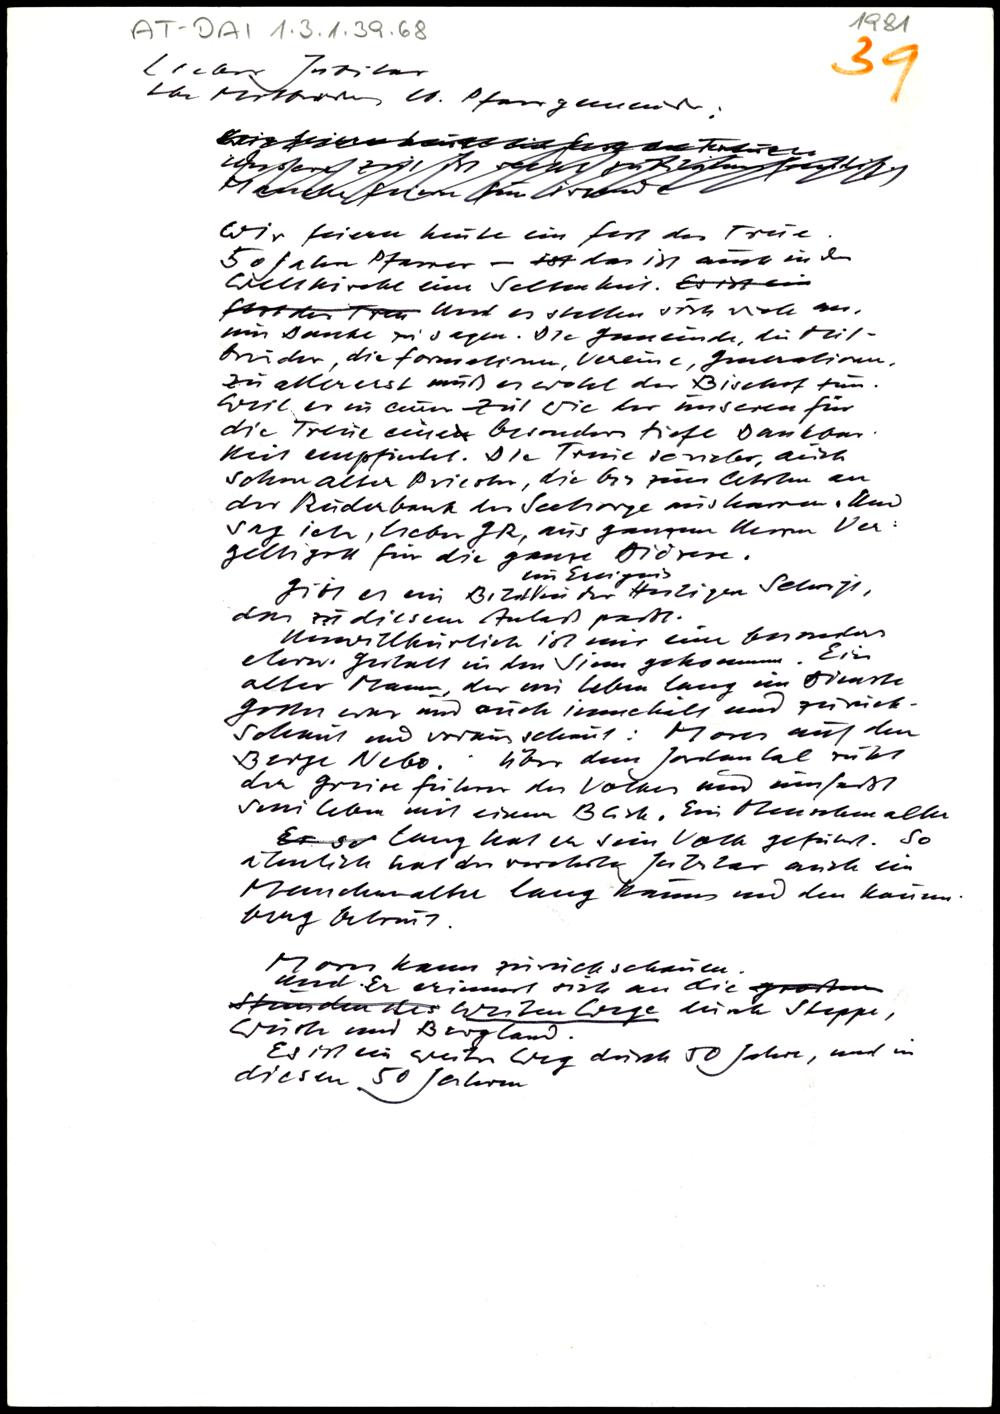 AT-DAI 1.3.1.39.68
1981
39
Lieber Jubilar
Mitbrüder, lb. Pfarrgemeinde,
Wir feiern heute ein Fest der Treue
Unsere Zeit ist
Manche feiern
Wir feiern heute ein Fest der Treue.
50 Jahre Pfarrer – ist das ist auch in der
Weltkirche eine Seltenheit. Es ist ein
Fest der Treue Und es stellen sich viele an,
um Danke zu sagen. Die Gemeinde, die Mit-
brüder, die Formationen, Vereine, Generationen.
Zu allererst muß es wohl der Bischof tun.
Weil er in einer Zeit wie der unseren für
die Treue eine besonders tiefe Dankbar-
keit empfindet. Die Treue so vieler, auch
schon alter Priester, die bis zum Letzten an
der Ruderbank der Seelsorge ausharren. Und
sag ich, lieber GR, aus ganzem Herzen Ver-
geltsgott für die ganze Diözese.
ein Ereignis
Gibt es ein Bild in der Heiligen Schrift,
das zu diesem Anlaß paßt.
Unwillkürlich ist mir eine besonders
ehrw. Gestalt in den Sinn gekommen. Ein
alter Mann, der ein Leben lang im Dienste
Gottes war und auch innehält und zurück-
schaut und vorausschaut: Moses auf dem
Berge Nebo. Über dem Jordantal ruht
der greise Führer des Volkes und umfaßt
sein Leben mit einem Blick. Ein Menschenalter
Er so lang hat er sein Volk geführt. So
ähnlich hat der verehrte Jubilar auch ein
Menschenalter lang Kauns und den Kauner-
berg betreut.
Moses kann zurückschauen.
Und Er erinnert sich an die großen
Stunden des weiten Wege durch Steppe,
Wüste und Bergland.
Es ist ein weiter Weg durch 50 Jahre, und in
diesen 50 Jahren